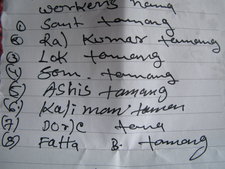 workers name
① Sant tamang
② Raj Kumar tamang
③ Lok tamang
④ Som. tamang
⑤ Ashis tamang
⑥ Kaji man taman
⑦ Dorje tama
⑧ Fatta B. tamang